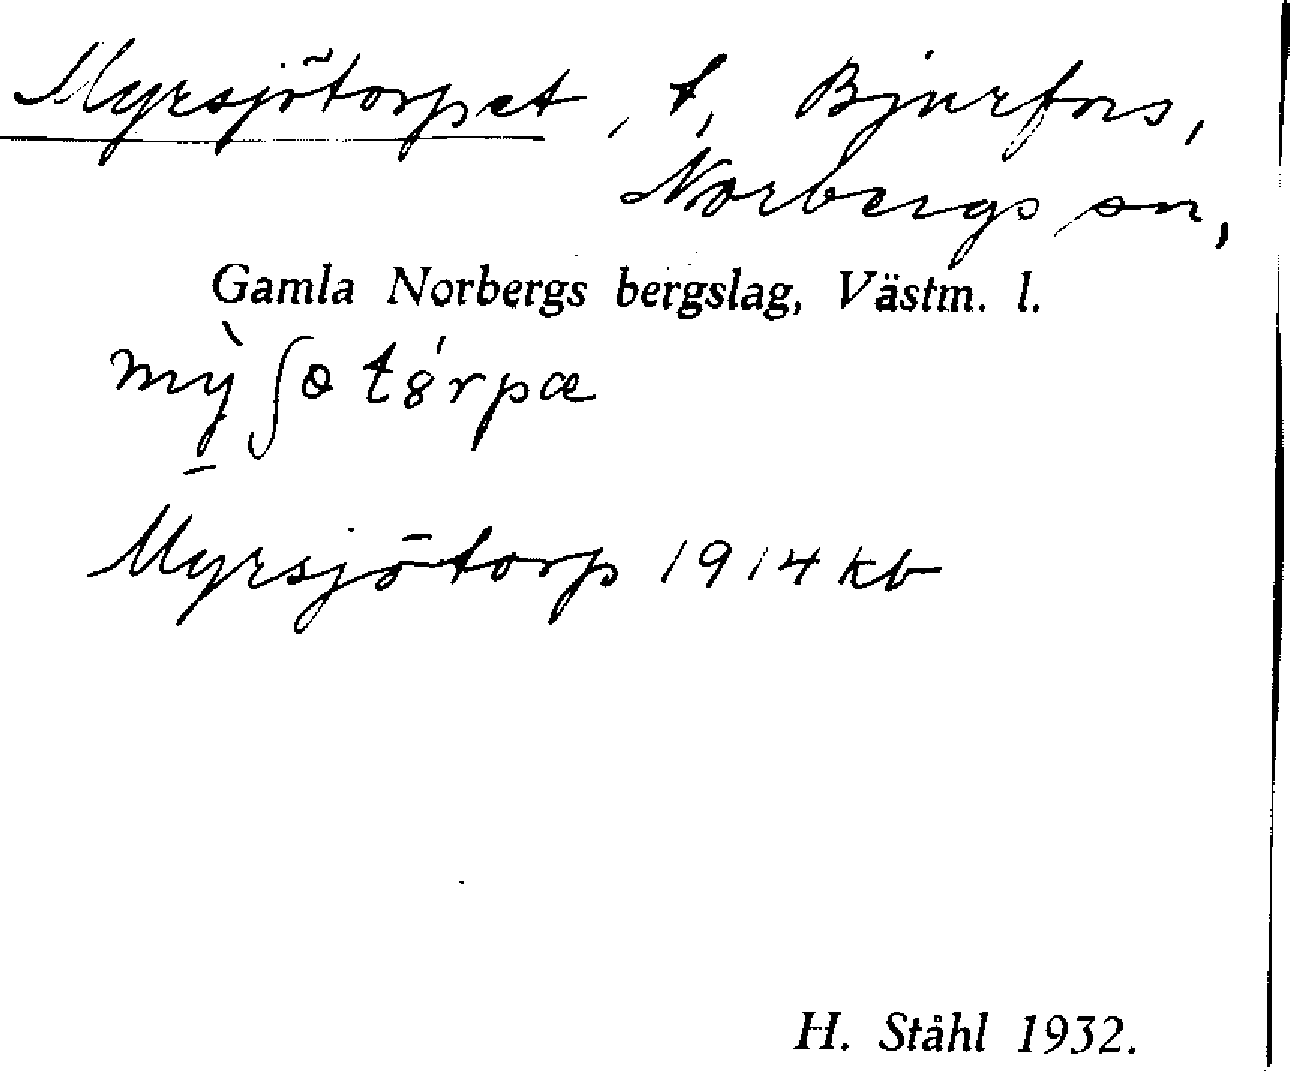 Myrsjötorpet, t, Bjurfors,
Norbergs sn,
Gamla Norbergs bergslag, Västm. l.
mỳ̠ʃɵ tȣ́rpæ
Myrsjötorp 1914 kb
H. Ståhl 1932.